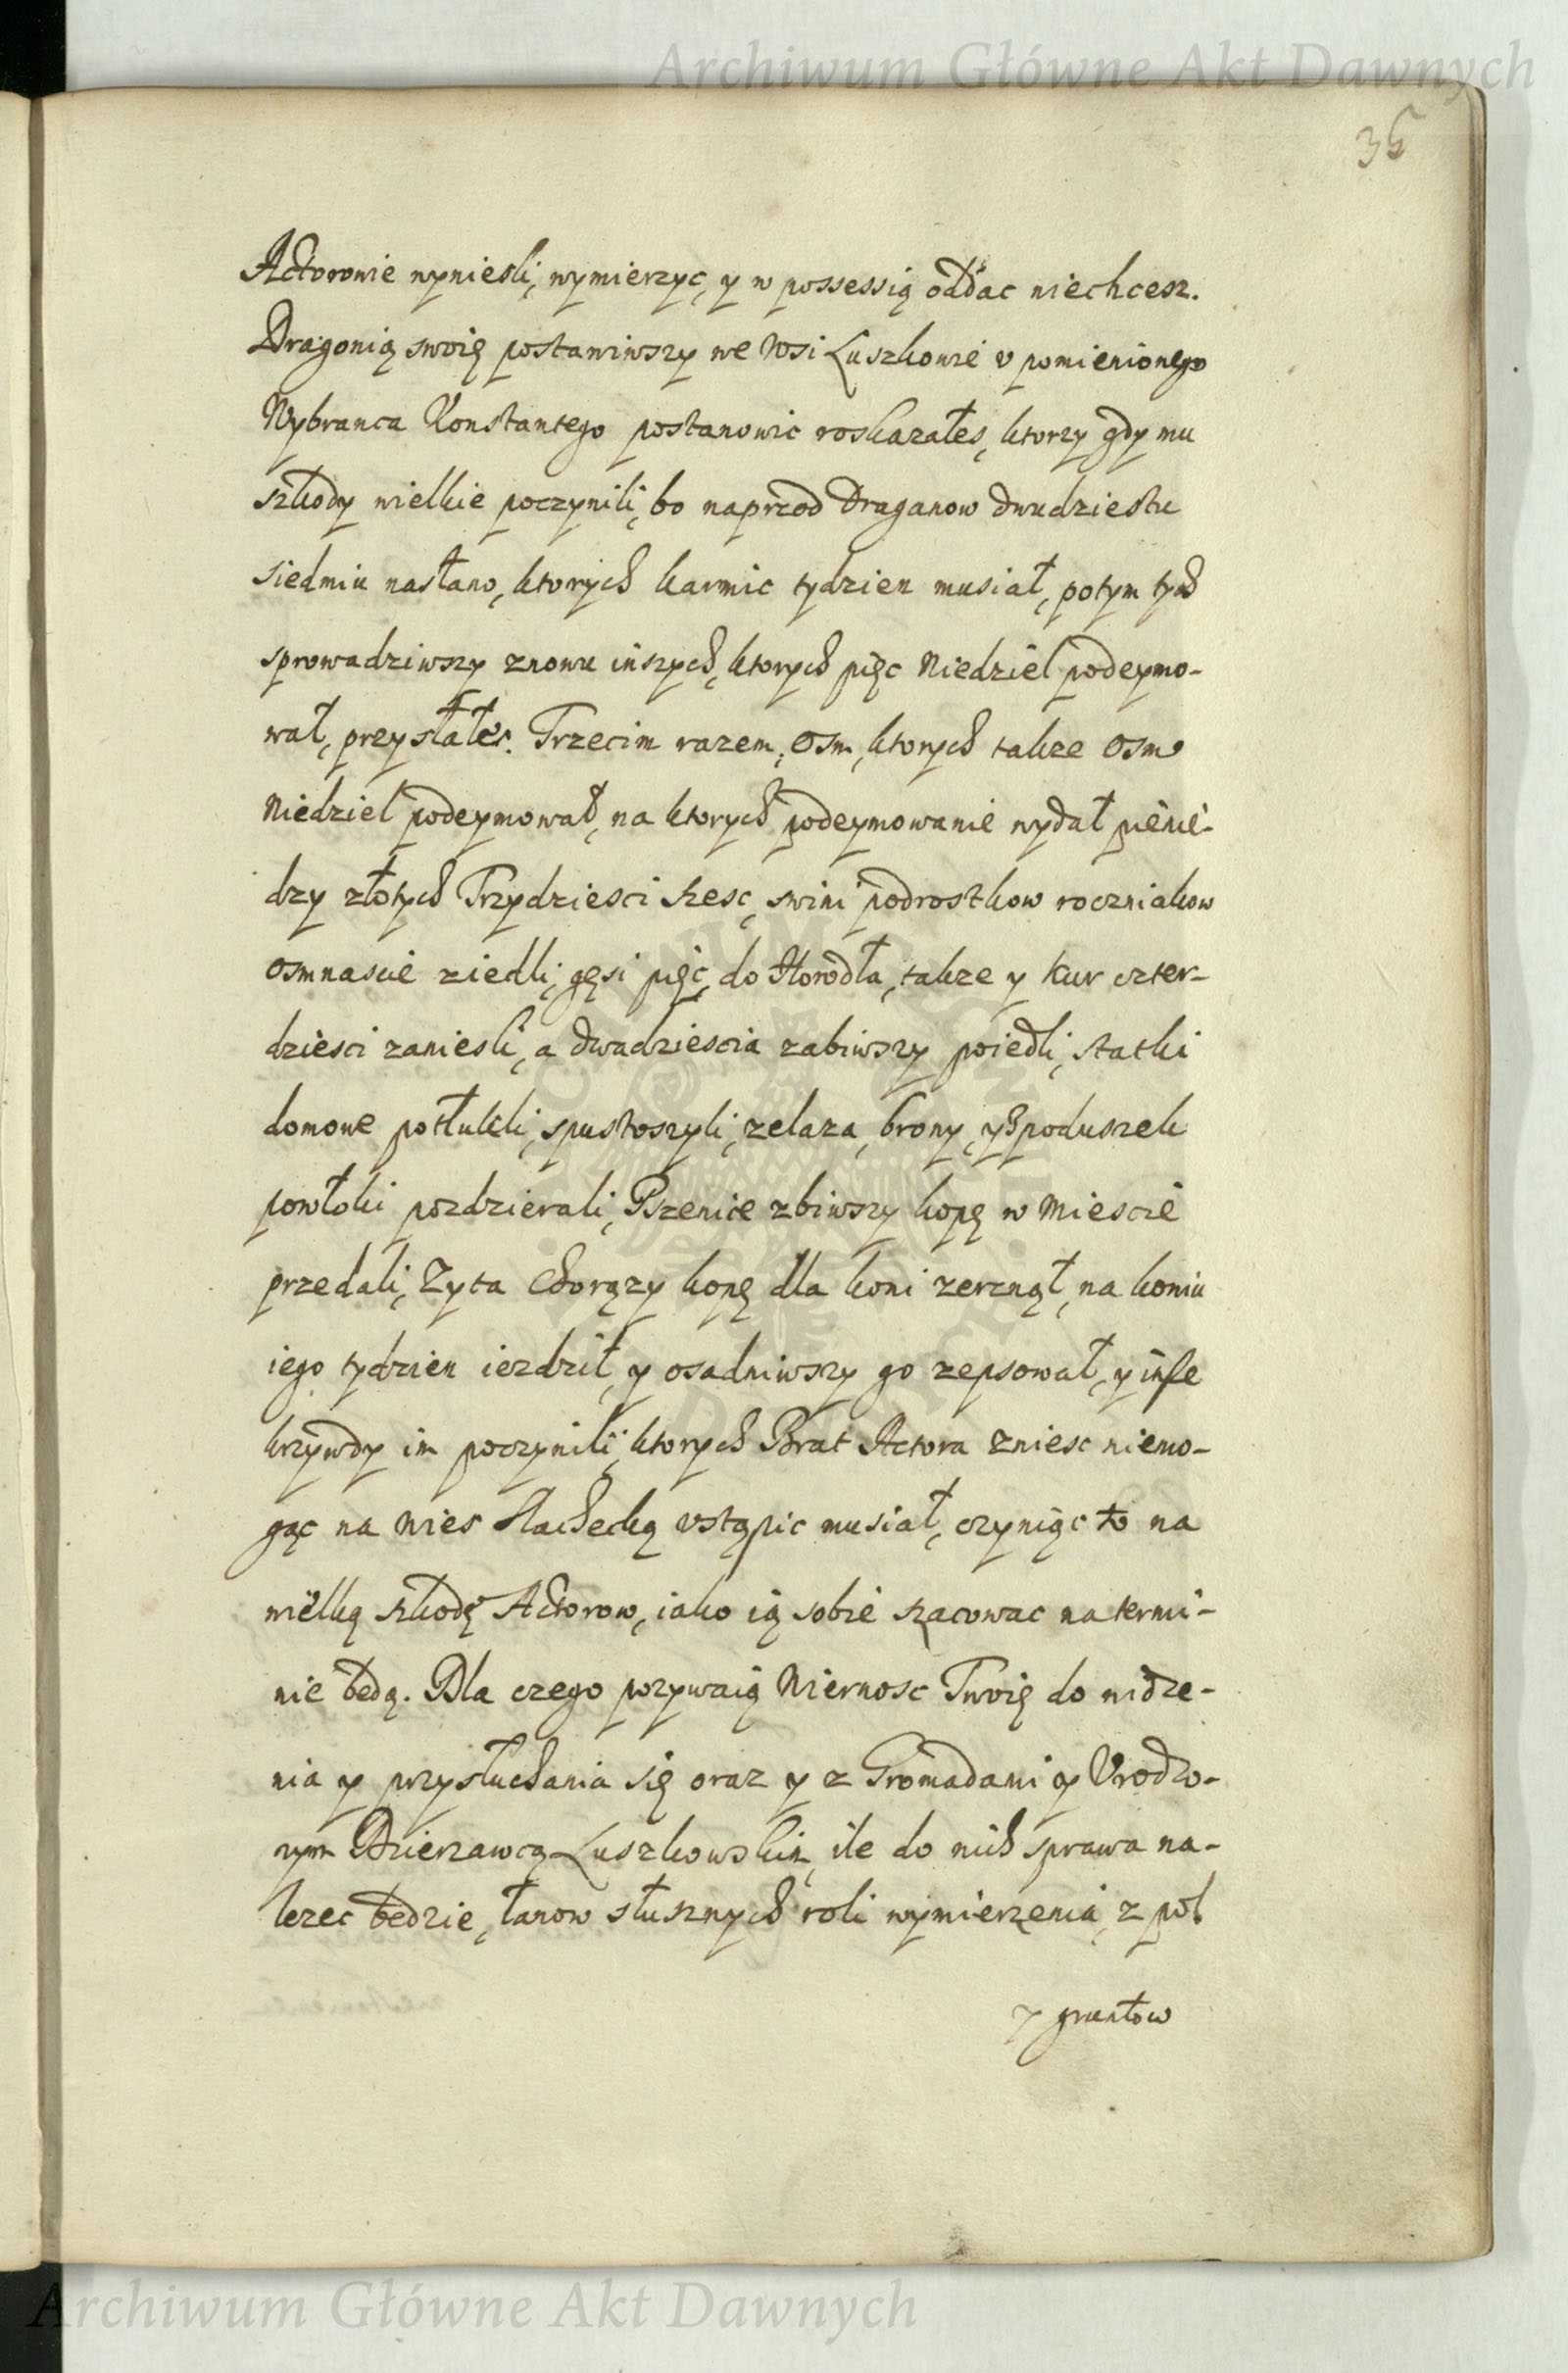 Archiwum Główne Akt Dawnych
35
Actorowie wyniesli, wymierzyc, y w possessią oddac niechcesz.
Dragonią swoię postawiwszy we Wsi Łuszkowie v pomienionego
Wybranca Konstantego postanowic roskazałes, ktorzy gdy mu
szkody wielkie poczynili, bo naprzod Draganow dwudziestu
siedmiu nasłano, ktorych karmic tydzien musiał, potym tych
sprowadziwszy znowu inszych, ktorych pięc Niedziel podeymo-
wał, przysłałes. Trzecim razem, Osm, ktorych takze Osm
Niedziel podeymował, na ktorych podeymowanie wydał pienie-
dzy złotych Trzydziesci szesc, swini podrostkow roczniakow
Osmnascie ziedli, gęsi pięc, do Horodła, takze y kur czter-
dziesci zaniesli, a dwadziescia zabiwszy poiedli, statki
domowe potłukli, spustoszyli, zelaza, brony, y s poduszek
powłoki pozdzierali, Pszenice zbiwszy kopę w Miescie
przedali, Zyta Chorązy kopę dla koni zerznął, na koniu
iego tydzien iezdził, y osadniwszy go zepsował, y insze
krzywdy im poczynili, ktorych Brat Actora zniesc niemo-
gąc na Wies slachecką vstąpic musiał, czyniąc to na
wielką szkodę Actorow, iako ią sobie szacowac na termi-
nie będą. Dla czego pozywaią Wiernosc Twoię do widze-
nia y przysłuchania się oraz y z Gromadami y Vrodzo-
nym Dzierzawcą Łuszkowskim, ile do nich sprawa na-
lezec będzie, łanow słusznych roli wymierzenia, z pol
y gruntow
Archiwum Główne Akt Dawnych